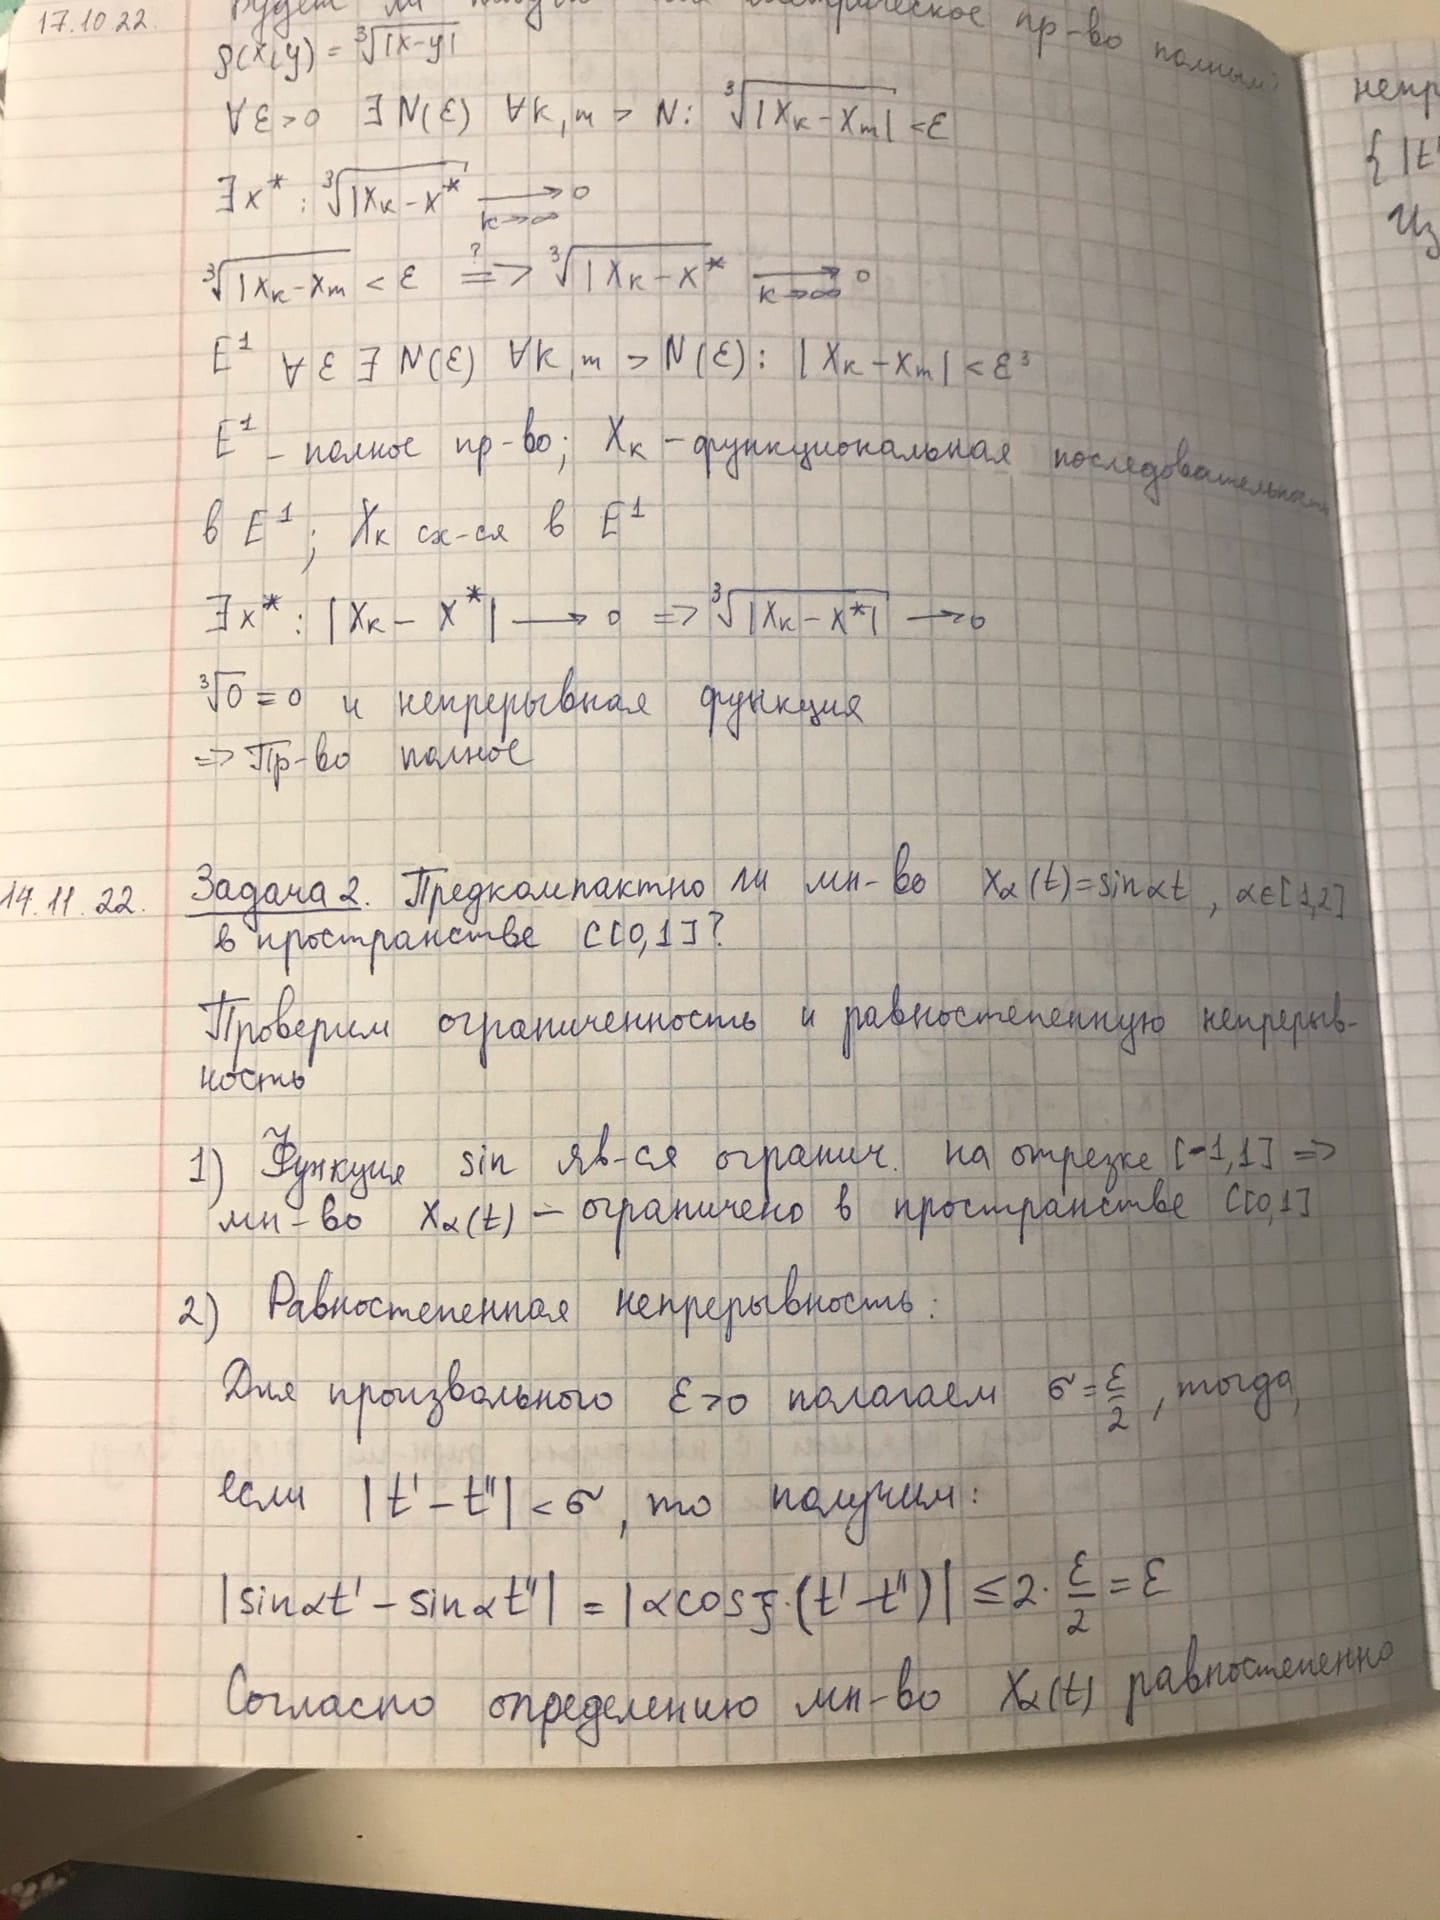 17.10.22.
ли пр-во полным
ρ(x,y) = ∛|x-y|
∀ε>0 ∃N(ε) ∀k,m > N: ∛|Xₖ-Xₘ| <ε
∃x* : ∛|Xₖ-x* ⟶ 0 k→∞
∛|Xₖ-Xₘ < ε ?=> ∛|Xₖ-x* ⟶ 0 k→∞
E¹ ∀ε ∃N(ε) ∀k,m > N(ε): |Xₖ-Xₘ| < ε³
E¹ - полное пр-во; Xₖ - функциональная последовательность
в E¹; Xₖ сх-ся в E¹
∃x* : |Xₖ - X*| ⟶ 0 => ∛|Xₖ-X*| ⟶ 0
∛0 = 0 и непрерывная функция
=> Пр-во полное
14.11.22. Задача 2. Предкомпактно ли мн-во X_α(t) = sinαt , α∈[1,2]
в пространстве C[0,1]?
Проверим ограниченность и равностепенную непрерыв-
ность
1) Функция sin яв-ся огранич. на отрезке [-1,1] =>
мн-во X_α(t) - ограничено в пространстве C[0,1]
2) Равностепенная непрерывность:
Для произвольного ε>0 полагаем σ = ε/2 , тогда,
если |t' - t''| < σ , то получим:
|sinαt' - sinαt''| = |αcosξ·(t'-t'')| ≤ 2·ε/2 = ε
Согласно определению мн-во X_α(t) равностепенно
непр
{ |t'
Из